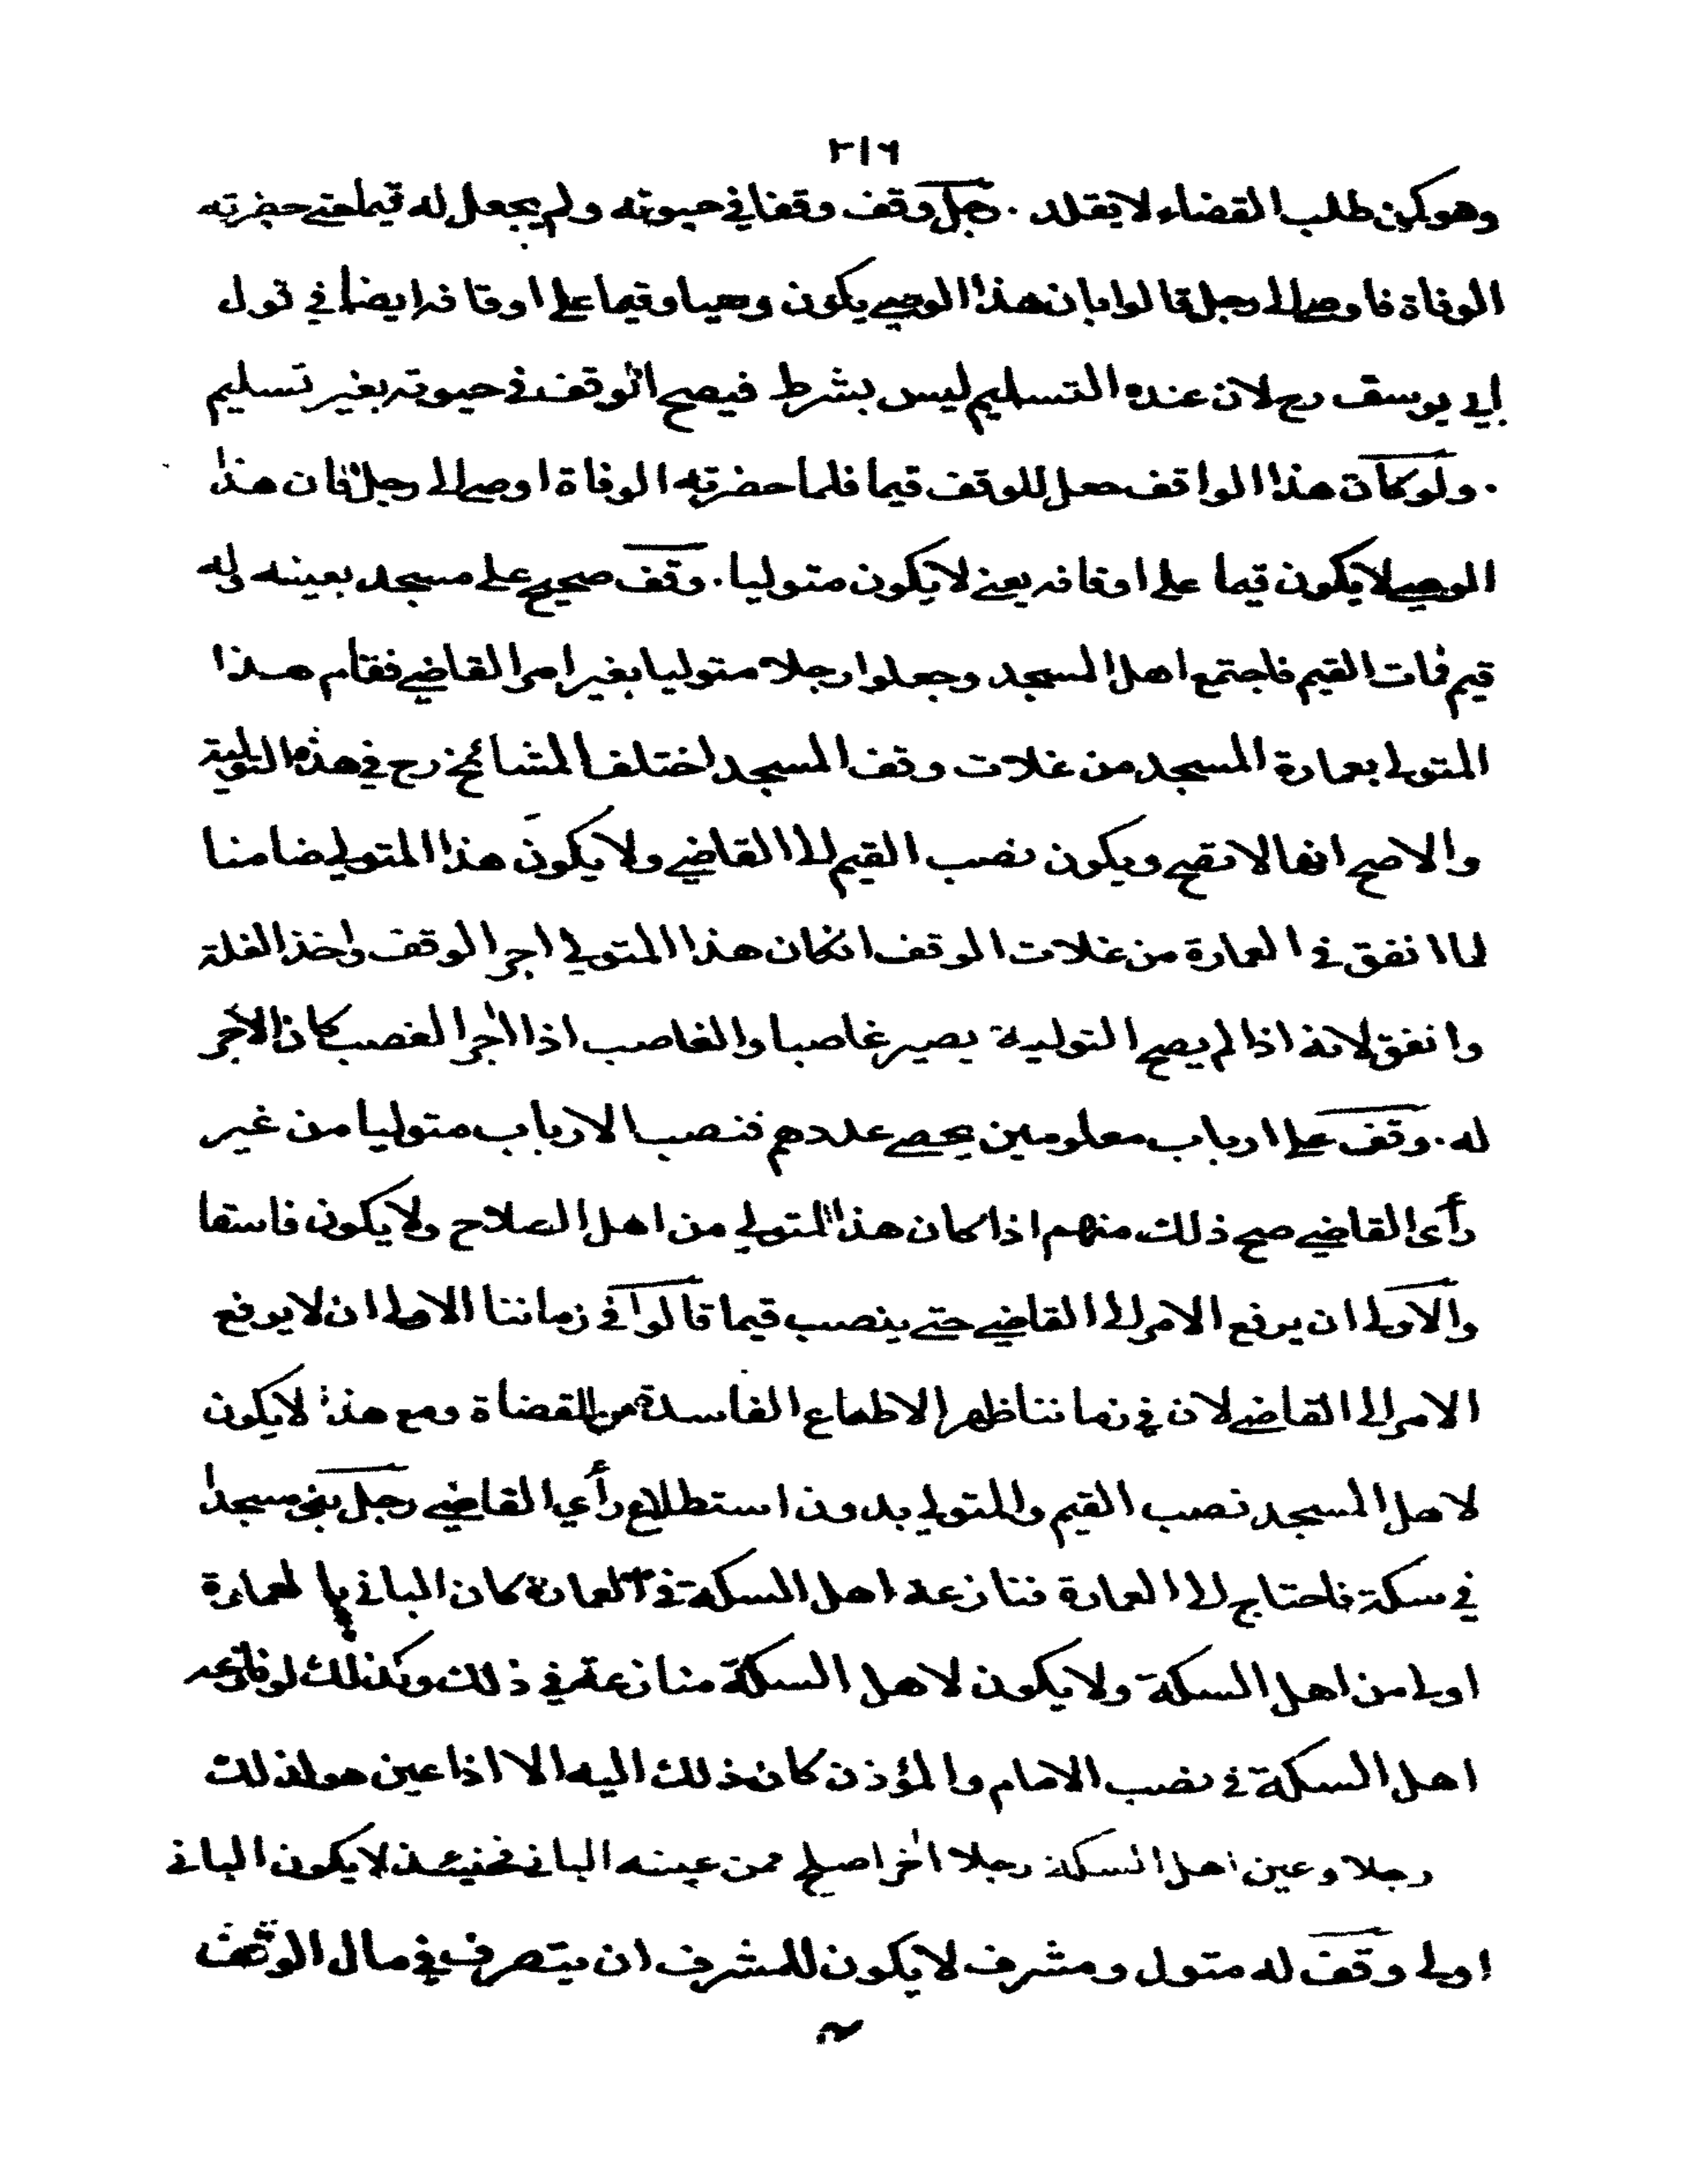 ٢١٦
وهو كمن طلب القضاء لا يقلد . رجل وقف وقفا في حيوته ولم يجعل له قيما حتى حضرته
الوفاة فاوصى الى رجل قالوا بان هذا الوصي يكون وصيا وقيما على اوقافه ايضا في قول
ابي يوسف رح لان عنده التسليم ليس بشرط فيصح الوقف في حيوته بغير تسليم
. ولو كان هذا الواقف جعل للوقف قيما فلما حضرته الوفاة اوصى الى رجل فان هذا
الوصي لا يكون قيما على اوقافه يعني لا يكون متوليا . وقف صحيح على مسجد بعينه وله
قيم فمات القيم فاجتمع اهل المسجد وجعلوا رجلا متوليا بغير امر القاضي فقام هذا
المتولي بعمارة المسجد من غلات وقف المسجد اختلف المشائخ رح في هذه التولية
والاصح انها لا تصح ويكون نصب القيم الى القاضي ولا يكون هذا المتولي ضامنا
لما انفق في العمارة من غلات الوقف انكان هذا المتولي اجر الوقف واخذ الغلة
وانفق لانه اذا لم يصح التولية يصير غاصبا والغاصب اذا اجر الغصب كان الاجر
له . وقف على ارباب معلومين يحصى عددهم فنصب الارباب متوليا من غير
رأى القاضي صح ذلك منهم اذا كان هذا المتولي من اهل الصلاح ولا يكون فاسقا
والاولى ان يرفع الامر الى القاضي حتى ينصب قيما قالوا في زماننا الاولى ان لا يرفع
الامر الى القاضي لان في زماننا ظهر الاطماع الفاسدة من القضاة ومع هذا لا يكون
لاهل المسجد نصب القيم والمتولي بدون استطلاع رأي القاضي رجل بنى مسجدا
في سكة فاحتاج الى العمارة فنازعه اهل السكة في العمارة كان الباني بالعمارة
اولى من اهل السكة ولا يكون لاهل السكة منازعة في ذلك وكذلك لو نازعه
اهل السكة في نصب الامام والمؤذن كان ذلك اليه الا اذا عين هو لذلك
رجلا وعين اهل السكة رجلا اخر اصلح ممن عينه الباني فحينئذ لا يكون الباني
اولى وقف له متول ومشرف لا يكون للمشرف ان يتصرف في مال الوقف